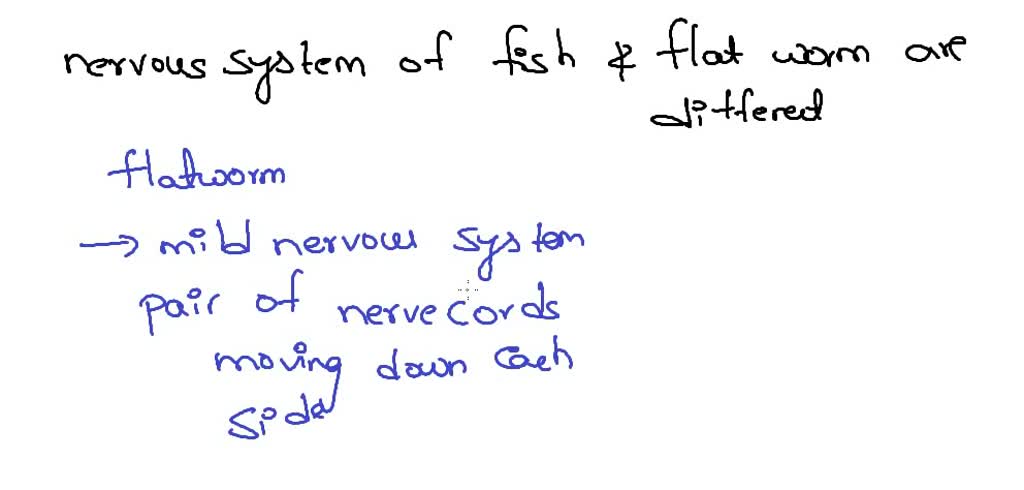 nervous system of fish & flat worm are
differed
flatworm
→ mild nervous system
pair of nerve cords
moving down each
side